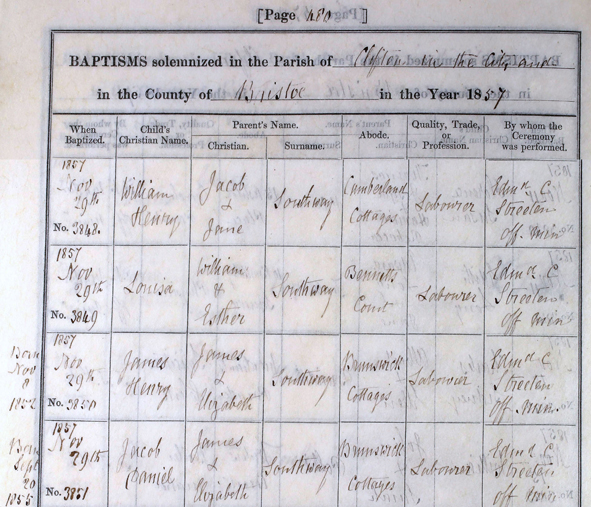 [Page 480]
BAPTISMS solemnized in the Parish of Clifton in the City and
in the County of Bristol in the Year 1857
When Baptized. Child's Christian Name. Parent's Name. Christian. Surname. Abode. Quality, Trade, or Profession. By whom the Ceremony was performed.
1857 Nov 29th No. 3848. William Henry Jacob & Jane Southway Cumberland Cottages Labourer Edmd C Streeten off. Min
1857 Nov 29th No. 3849 Louisa William & Esther Southway Bennetts Court Labourer Edmd C Streeten off Min
Born Nov 8 1852 1857 Nov 29th No. 3850 James Henry James & Elizabeth Southway Brunswick Cottages Labourer Edmd C Streeten off. Min.
Born Sept 20 1855 1857 Nov 29th No. 3851 Jacob Daniel James & Elizabeth Southway Brunswick Cottages Labourer Edmd C Streeten off Min